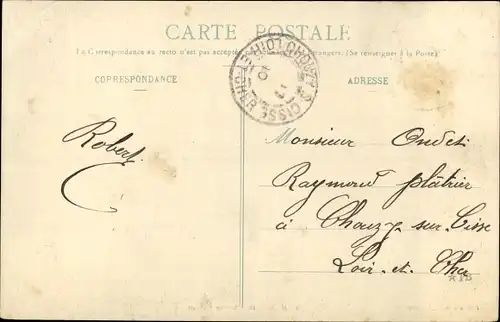 CARTE POSTALE
La Correspondance au recto n'est pas acceptée par tous les pays étrangers. (Se renseigner à la Poste).
CORRESPONDANCE
ADRESSE
CHOUZY-S-CISSE
LOIR-ET-CHER
Robert
Monsieur Oudet
Raymond plâtrier
à Chouzy-sur-Cisse
Loir-et-Cher